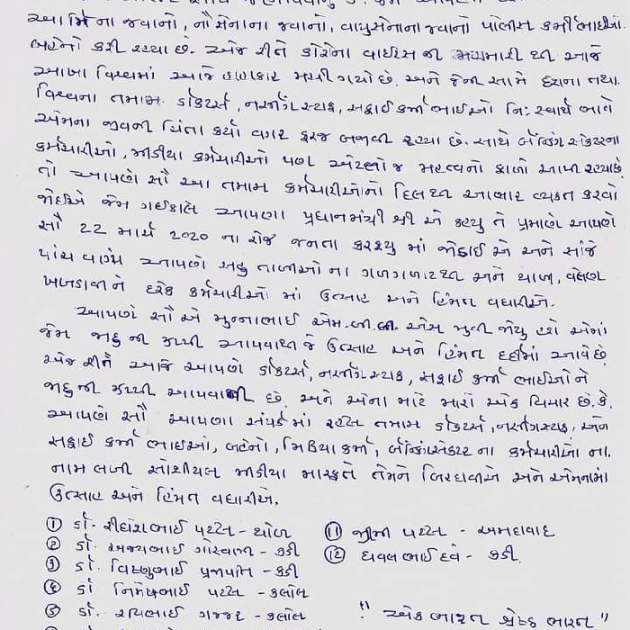 આર્મિ ના જવાનો, નૌસેનાના જવાનો, વાયુસેનાના જવાનો પોલીસ કર્મીભાઈઓ
બહેનો કરી રહ્યા છે. એજ રીતે કોરોના વાઈરસ ની મહામારી થી આજે
આખા વિશ્વમાં આજે હાહાકાર મચી ગયો છે. અને જેની સામે દેશના તથા
વિશ્વના તમામ ડોક્ટર્સ, નરસીંગ સ્ટાફ, સફાઈ કર્મી ભાઈઓ નિઃસ્વાર્થ ભાવે
એમના જીવની ચિંતા કર્યા વગર ફરજ બજાવી રહ્યા છે. સાથે બેંન્કિંગ સેક્ટરના
કર્મચારીઓ, મીડીયા કર્મચારીઓ પણ એટલો જ મહત્વનો ફાળો આપી રહ્યા છે.
તો આપણે સૌ આ તમામ કર્મચારીઓનો દિલથી આભાર વ્યક્ત કરવો
જોઈએ જેમ ગઈકાલે આપણા પ્રધાનમંત્રી શ્રી એ કહ્યુ તે પ્રમાણે આપણે
સૌ 22 માર્ચ 2020 ના રોજ જનતા કરફ્યુ માં જોડાઈ એ અને સાંજે
પાંચ વાગ્યે આપણે સહુ તાળીઓ ના ગળગળાટથી અને થાળી, વેલણ
ખખડાવીને દરેક કર્મચારીઓ માં ઉત્સાહ અને હિંમત વધારીએ.
આપણે સૌ એ મુન્નાભાઈ એમ.બી.બી. એસ મુવી જોયુ હશે એમાં
જેમ જાદુ ની ઝપ્પી આપવાથી જે ઉત્સાહ અને હિંમત દર્દીમાં આવે છે
એજ રીતે આજે આપણે ડોક્ટર્સ, નરસીંગ સ્ટાફ, સફાઈ કર્મી ભાઈઓને
જાદુની ઝપ્પી આપવાની છે. અને એના માટે મારો એક વિચાર છે. કે.
આપણે સૌ આપણા સંપર્કમાં રહેલ તમામ ડોક્ટર્સ, નરસીંગસ્ટાફ, એન
સફાઈ કર્મી ભાઈઓ, બહેનો, મિડિયા કર્મી, બેંન્કિંગસેક્ટર ના કર્મચારીઓ ના
નામ લખી સોશીયલ મીડીયા મારફતે તેમને બિરદાવીએ અને એમનામાં
ઉત્સાહ અને હિંમત વધારીએ.
① ડૉ. રીધેશભાઈ પટેલ - થોળ
② ડૉ. અજયભાઈ ગોસ્વામી - કડી
③ ડૉ. વિષ્ણુભાઈ પ્રજાપતિ - કડી
④ ડૉ. નિમેષભાઈ પટેલ - કલોલ
⑤ ડૉ. રવિભાઈ ગજ્જર - કલોલ
⑪ જીમી પટેલ - અમદાવાદ
⑫ ધવલભાઈ દવે - કડી.
" એક ભારત શ્રેષ્ઠ ભારત "